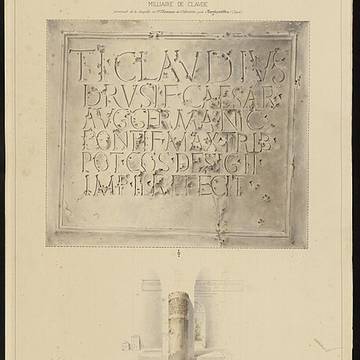 MILLIAIRE DE CLAUDE
provenant de la chapelle
TI·CLAVDIVS
DRVSI·F·CAESAR
AVG·GERMANIC·
PONTIF·MAX·TRIB·
POT·COS·DESIG·II·
IMP·II·